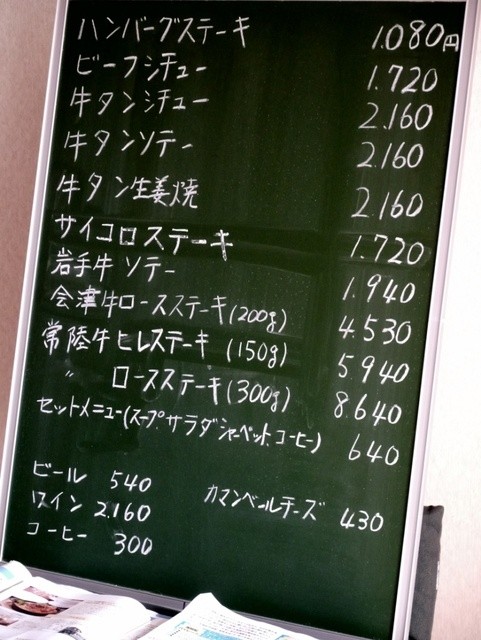 ハンバーグステーキ 1.080円
ビーフシチュー 1.720
牛タンシチュー 2.160
牛タンソテー 2.160
牛タン生姜焼 2.160
サイコロステーキ 1.720
岩手牛ソテー 1.940
会津牛ロースステーキ(200g) 4.530
常陸牛ヒレステーキ(150g) 5.940
〃 ロースステーキ(300g) 8.640
セットメニュー(スープ.サラダシャーベット.コーヒー) 640
ビール 540
ワイン 2.160 カマンベールチーズ 430
コーヒー 300